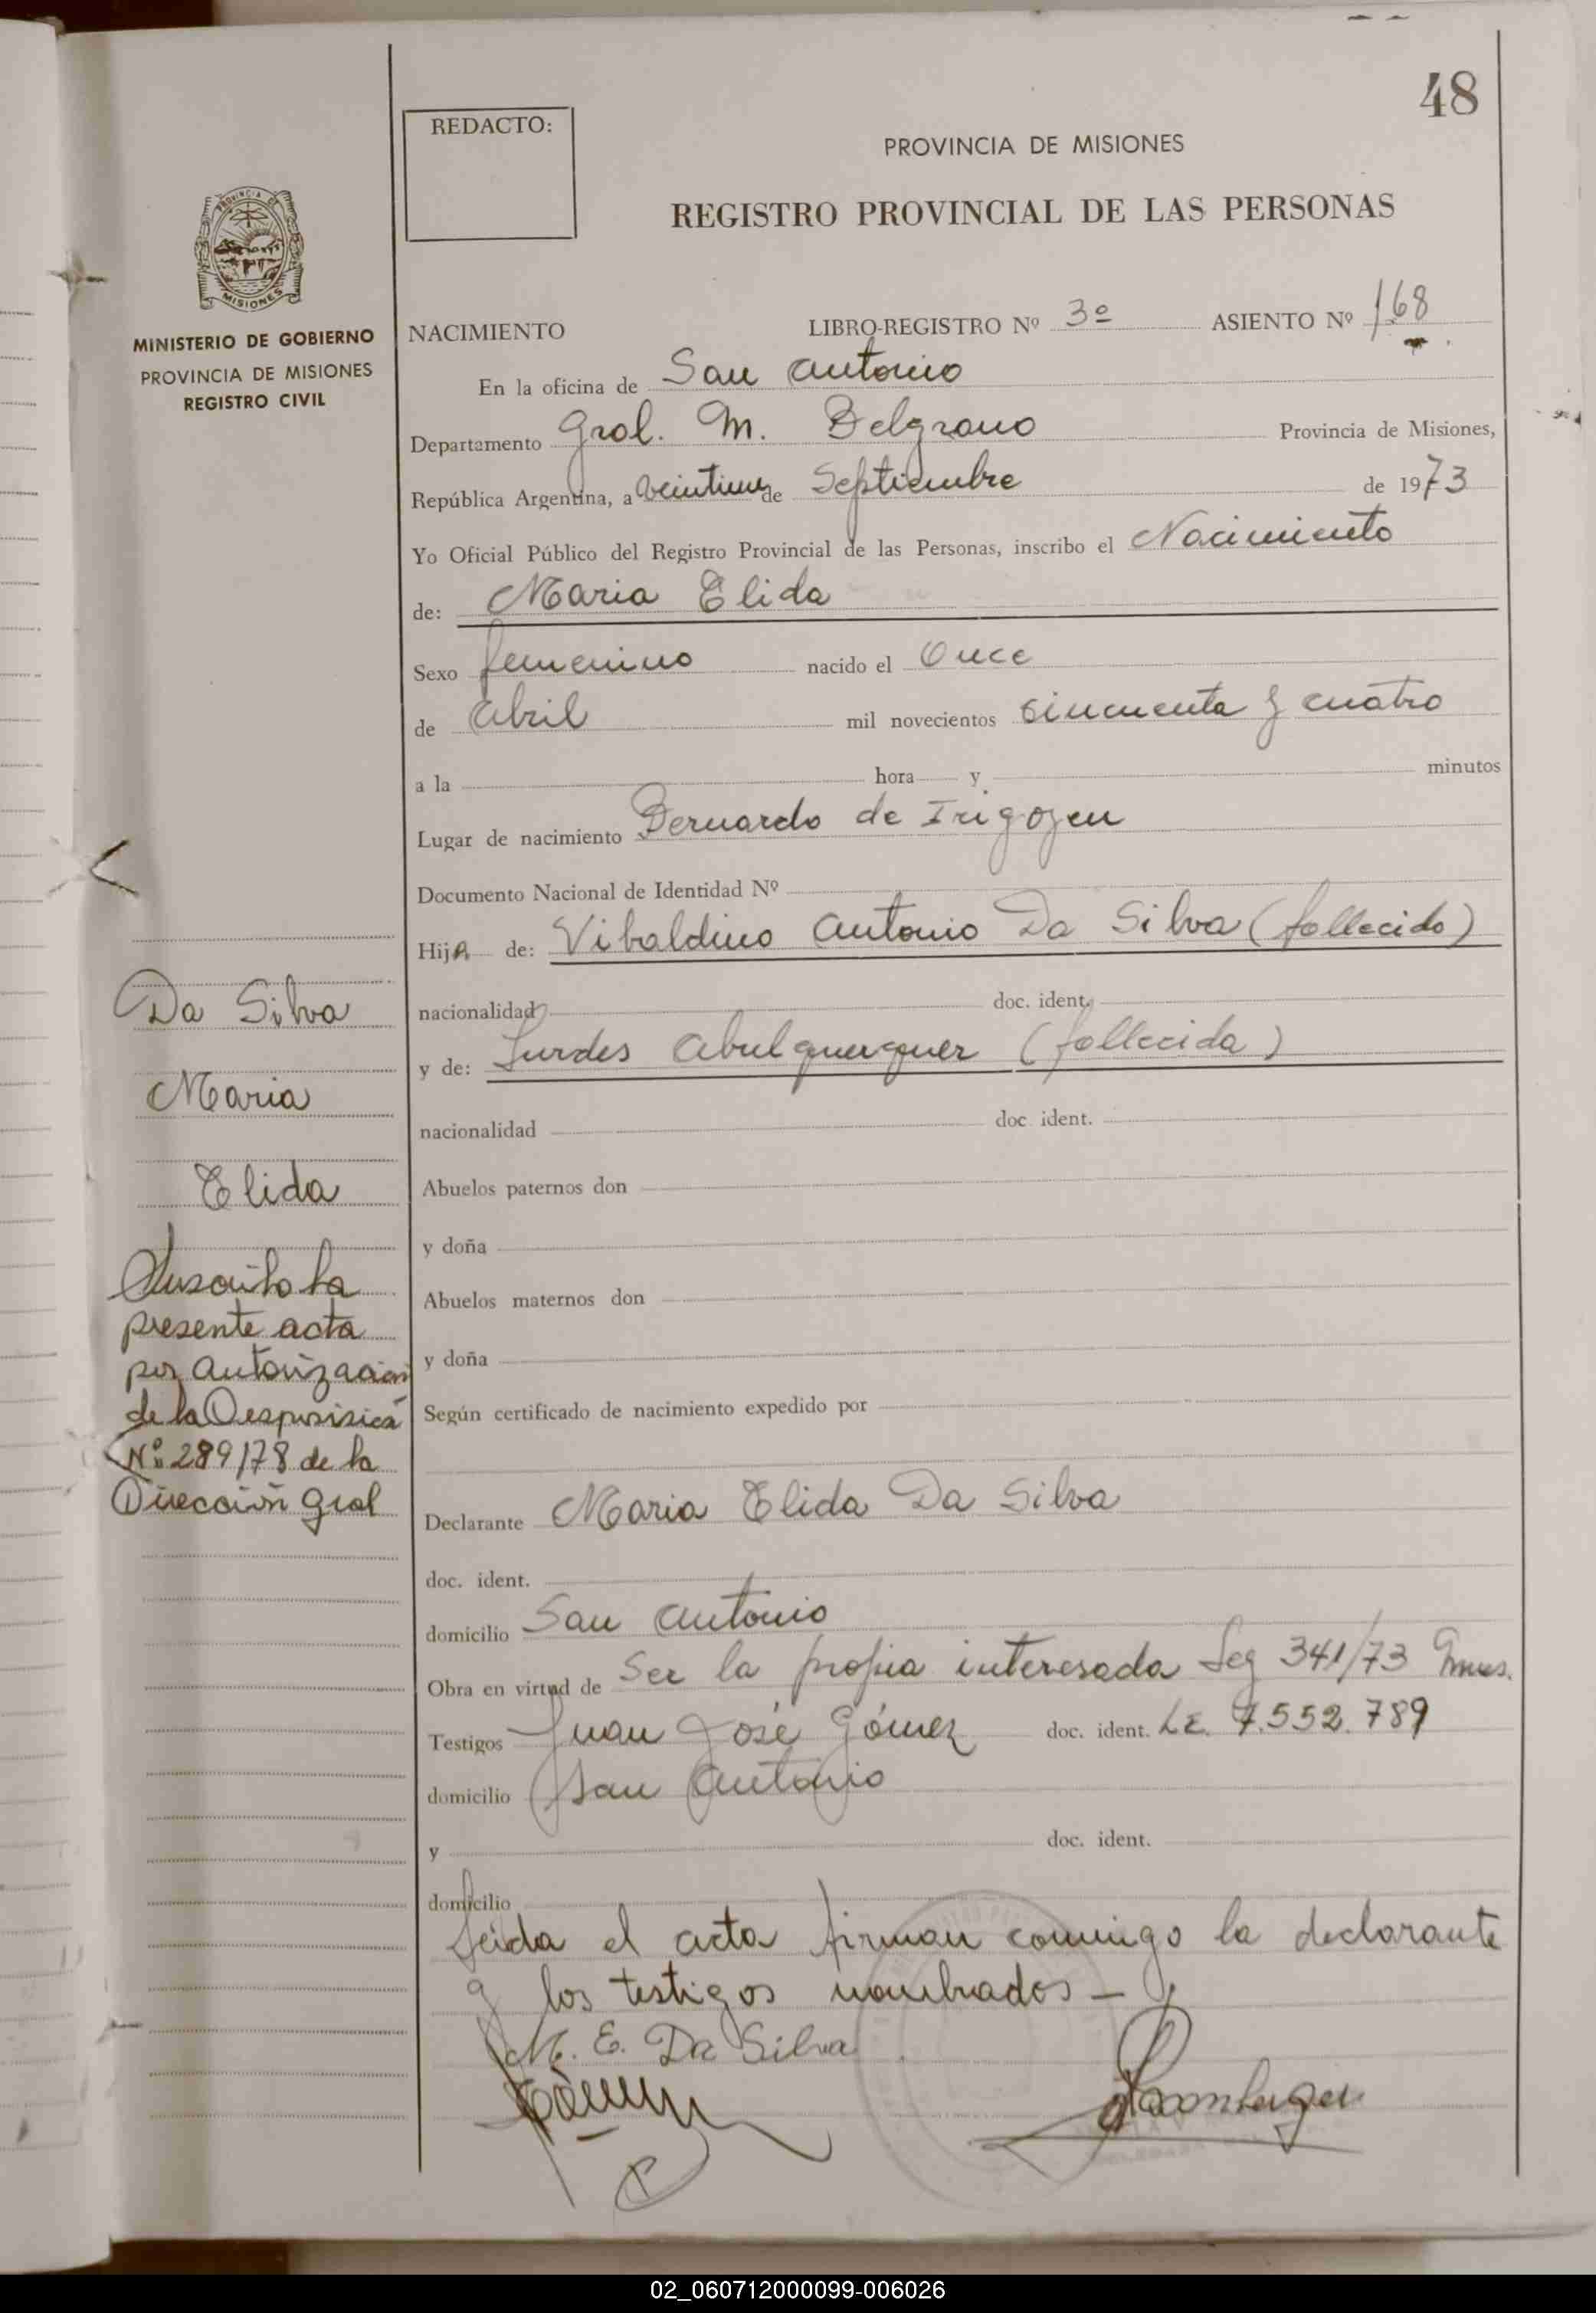 48
REDACTO:
PROVINCIA DE MISIONES
REGISTRO PROVINCIAL DE LAS PERSONAS
PROVINCIA DE
MISIONES
MINISTERIO DE GOBIERNO
PROVINCIA DE MISIONES
REGISTRO CIVIL
NACIMIENTO LIBRO-REGISTRO Nº 3º ASIENTO Nº 168
En la oficina de San Antonio
Departamento Gral. M. Belgrano Provincia de Misiones,
República Argentina, a veintiun de Septiembre de 1973
Yo Oficial Público del Registro Provincial de las Personas, inscribo el Nacimiento
de: Maria Elida
Sexo femenino nacido el Once
de Abril mil novecientos cincuenta y cuatro
a la hora y minutos
Lugar de nacimiento Bernardo de Irigoyen
Documento Nacional de Identidad Nº
Hija de: Vibaldino Antonio Da Silva (fallecido)
nacionalidad doc. ident.
y de: Lurdes Abulquerquer (fallecida)
nacionalidad doc. ident.
Abuelos paternos don
y doña
Abuelos maternos don
y doña
Según certificado de nacimiento expedido por
Declarante Maria Elida Da Silva
doc. ident.
domicilio San Antonio
Obra en virtud de Ser la propia interesada Leg 341/73
Testigos Juan José Gómez doc. ident. L.E. 7.552.789
domicilio San Antonio
y doc. ident.
domicilio
Leida el acta firman conmigo la declarante
y los testigos nombrados -
M. E. Da Silva
Da Silva
Maria
Elida
la
presente acta
por Autorización
de la
Nº 289/78 de la
Dirección Gral
02_060712000099-006026